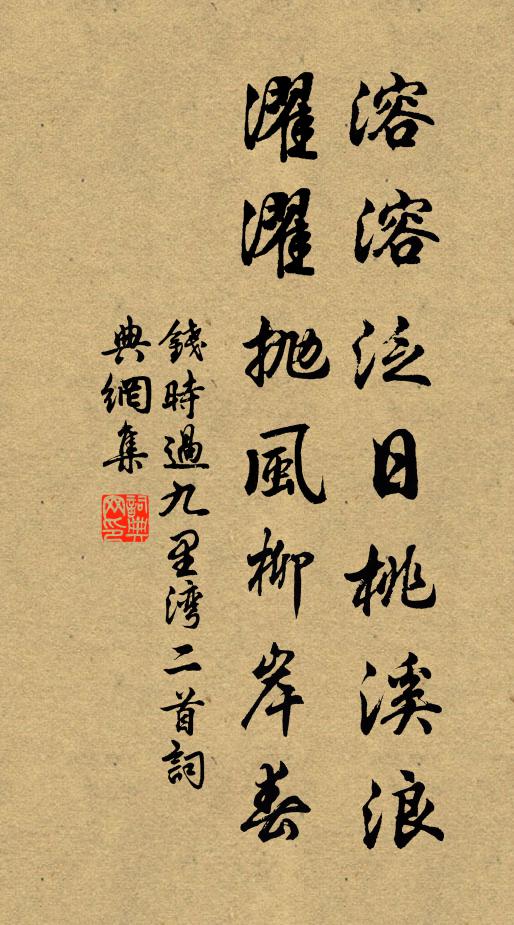 溶溶泛日桃溪浪
濯濯抛風柳岸春
錢時過九里湾二首詞
典網集
詞典
网印